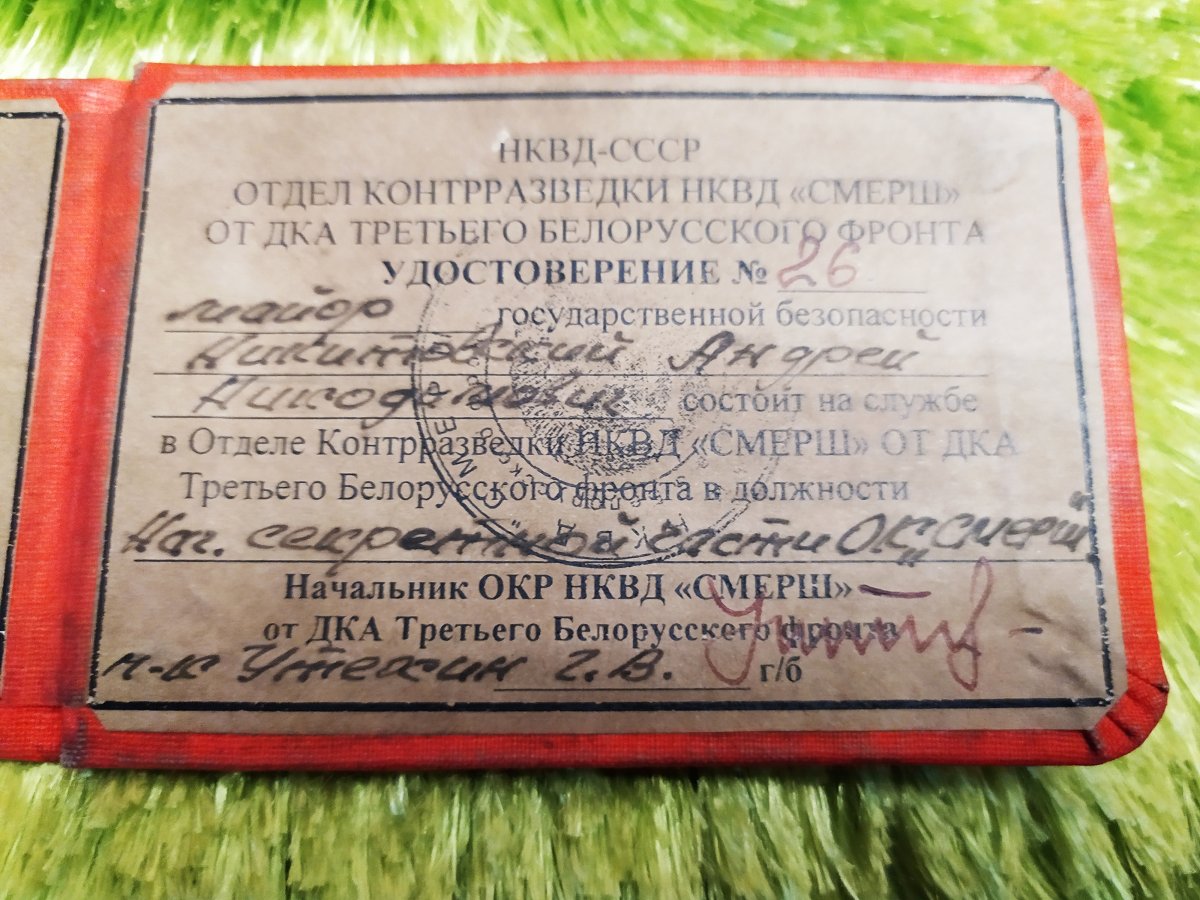 НКВД-СССР
ОТДЕЛ КОНТРРАЗВЕДКИ НКВД «СМЕРШ»
ОТ ДКА ТРЕТЬЕГО БЕЛОРУССКОГО ФРОНТА
УДОСТОВЕРЕНИЕ № 26
майор государственной безопасности
Никитовский Андрей
Никодимович состоит на службе
в Отделе Контрразведки НКВД «СМЕРШ» ОТ ДКА
Третьего Белорусского фронта в должности
Нач. секретной части ОК „Смерш"
Начальник ОКР НКВД «СМЕРШ»
от ДКА Третьего Белорусского фронта
г-к Утехин Г.В. г/б